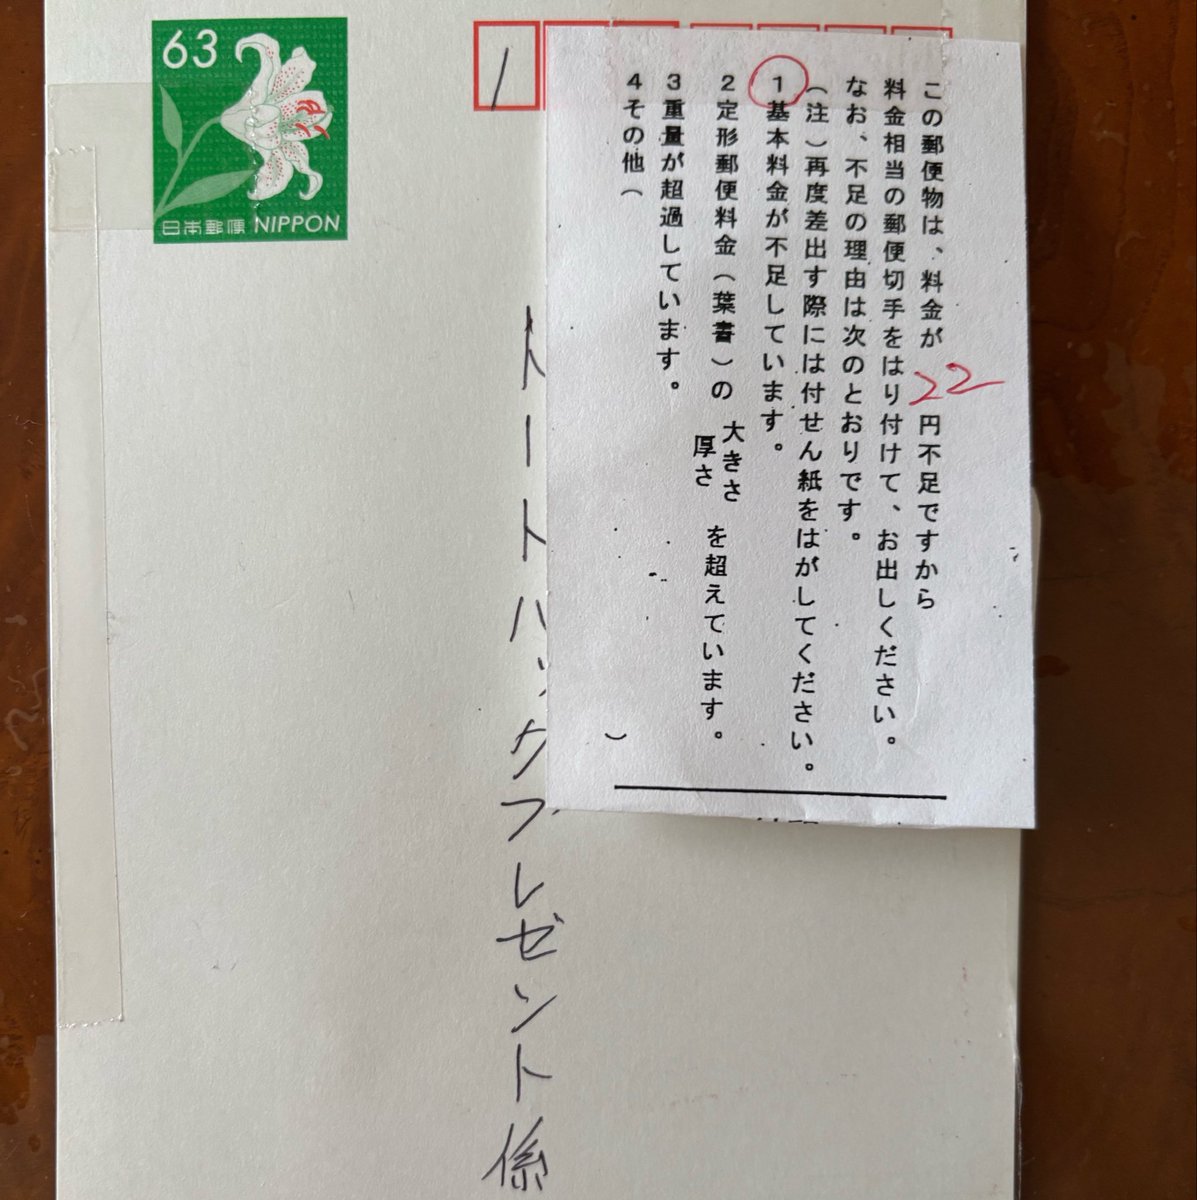 63
日本郵便 NIPPON
1
トートバッグプレゼント係
この郵便物は、料金が 22 円不足ですから
料金相当の郵便切手をはり付けて、お出しください。
なお、不足の理由は次のとおりです。
（注）再度差出す際には付せん紙をはがしてください。
1 基本料金が不足しています。
2 定形郵便料金（葉書）の 大きさ 厚さ を超えています。
3 重量が超過しています。
4 その他（ ）